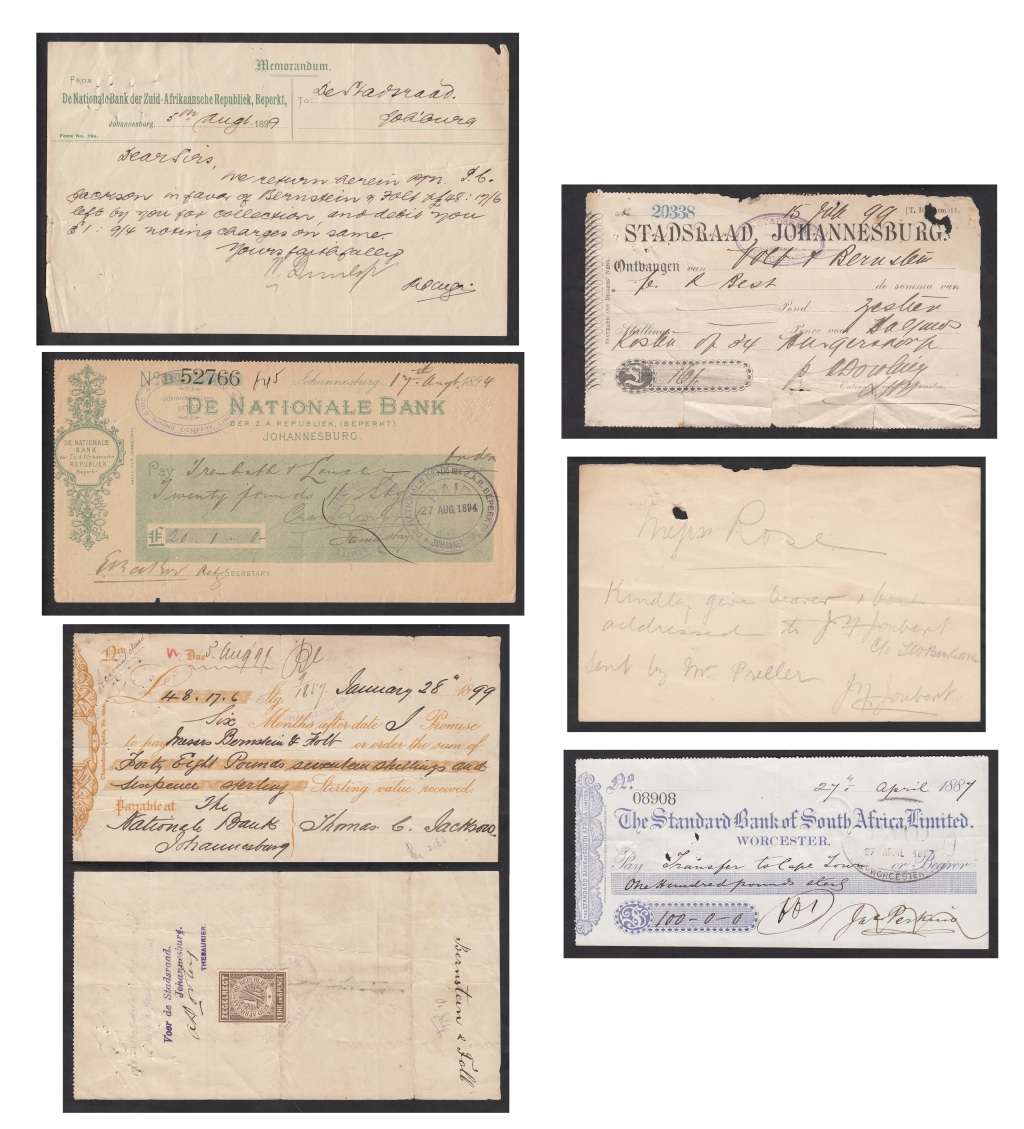 Memorandum.
From
De Nationale Bank der Zuid-Afrikaansche Republiek, Beperkt,
To De Stadsraad.
Johannesburg, 5th Augt. 1899
Joh'burg
Form No. 39a.
Dear Sirs,
we return herein P/N. T.C.
Jackson in favor of Bernstein & Folb £48:17/6
left by you for collection, and debit you
£1:9/4 noting charges on same.
Yours faithfully
W. Dunlop
No 52766
Johannesburg. 17th Augt. 1894
DE NATIONALE BANK
DER Z.A. REPUBLIEK, (BEPERKT)
JOHANNESBURG.
DE NATIONALE
BANK
der Zuid Afrikaansche
REPUBLIEK
Beperkt
Pay Trembath & or order
Twenty pounds
£ 20.1.0
PAID
27 AUG. 1894
SECRETARY
Due 5. Aug 99
£48.17.6 Stg January 28th 1899
Six Months after date I Promise
to pay Messrs Bernstein & Folb or order the sum of
Forty Eight Pounds seventeen shillings and
sixpence sterling Sterling value received
Payable at The
Nationale Bank Thomas C. Jackson
Johannesburg
Voor de Stadsraad.
Johannesburg.
THESAURIER.
ZEGELREGT
Bernstein & Folb
20338 15 Feb 99
STADSRAAD, JOHANNESBURG.
Ontvangen van Folb & Bernstein
p. R Best de somma van
Pond zestien
Shillings Pence voor
Kosten op Burgersdorp
£ 16/-
Messrs Rose
Kindly give bearer
addressed to J F Joubert
sent by Mr Preller
J F Joubert
No.
08908
27th April 1887
The Standard Bank of South Africa, Limited.
WORCESTER.
Pay Transfer to Cape Town or Bearer
One Hundred pounds sterlg
£ 100-0-0
27 APRIL 1887
WORCESTER
Jas Perkins